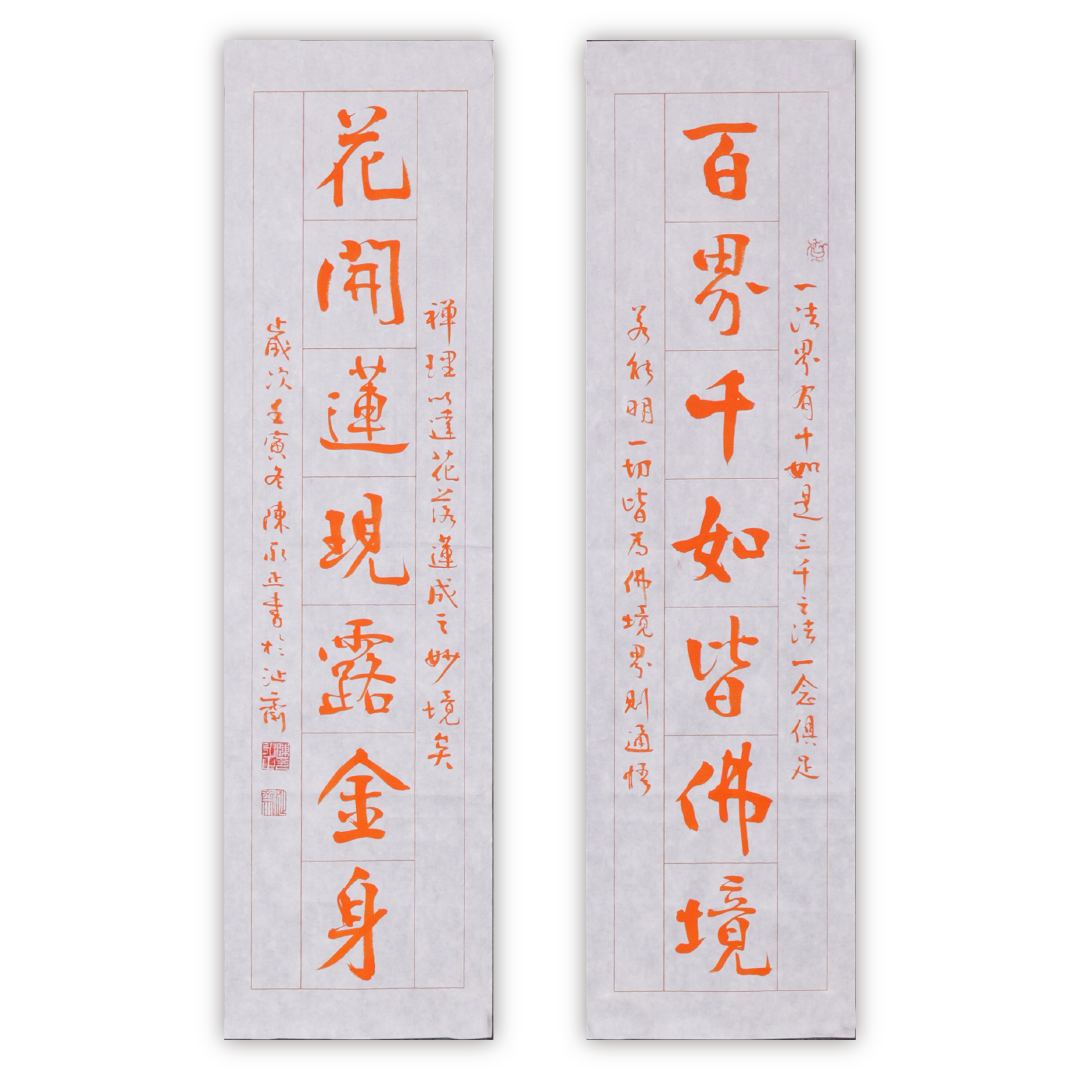 一法界有十如是三千之法一念俱足
百界千如皆佛境
若能明一切皆為佛境界則通悟
禪理以達花落蓮成之妙境矣
花開蓮現露金身
歲次壬寅冬陳永正書於沚齋